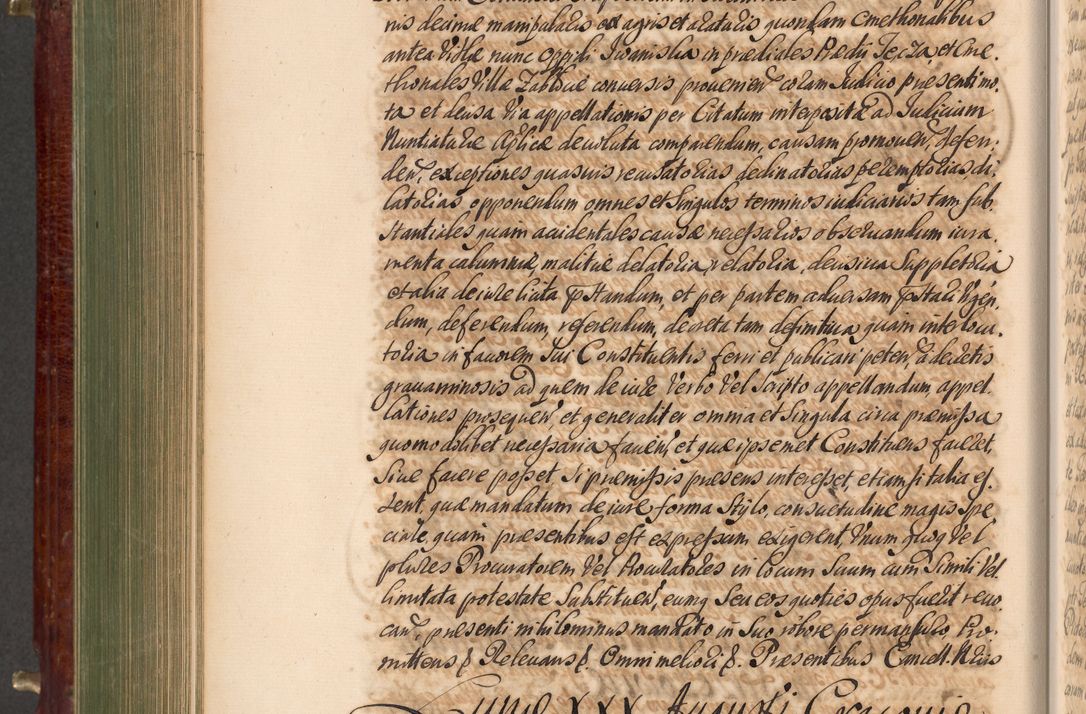 nis decimæ manipulalis ex agris et arabatis quondam Cmethonalibus
antea Villæ nunc Oppidi Iwaniska in prædiales Prædii Teczæ, et Cme-
thonales Villæ Zablocie conversis provenien̄ coram Iudicio præsenti mo-
ta et deusa via appellationis per Citatum interposita ad Iudicium
Nuntiaturæ Aplicæ devoluta comparendum, causam promoven̄, defen-
den̄, exceptiones quasuis recusatorias declinatorias peremptorias di-
latorias opponendum omnes et singulos terminos iudiciarios tam sub-
stantiales quam accidentales causæ necessarios observandum iura-
menta calumniæ, malitiæ delatoria, relatoria, decisiva suppletoria
et alia de iure licita præstandum, et per partem adversam præstari Vrgen-
dum, deferendum, referendum, decreta tam definitiva quam interlocu-
toria in favorem sui Constituentis ferri et publicari peten̄, à decretis
gravaminosis ad quem de iure Verbo Vel Scripto appellandum, appel-
lationes prosequen̄, et generaliter omnia et singula circa præmissa
quomodolibet necessaria facien̄, et quæ ipsemet Constituens faceret,
sive facere posset, si præmissis præsens interesset, etiamsi talia es-
sent, quæ mandatum de iure forma stylo, consuetudine magis spe-
ciale, quam præsentibus est expressum exigerent, Vnum quoq Vel
plures Procuratorem Vel Procuratores in locum suum cum simili Vel
limitata potestate substituen̄, eumq seu eos quoties opus fuerit revo-
can̄, præsenti nihilominus mandato in suo robore permansuro, Pro-
mittens &. Relevans &. Omni meliori &. Præsentibus Cancell. Nris
XXX Augusti Cracoviæ